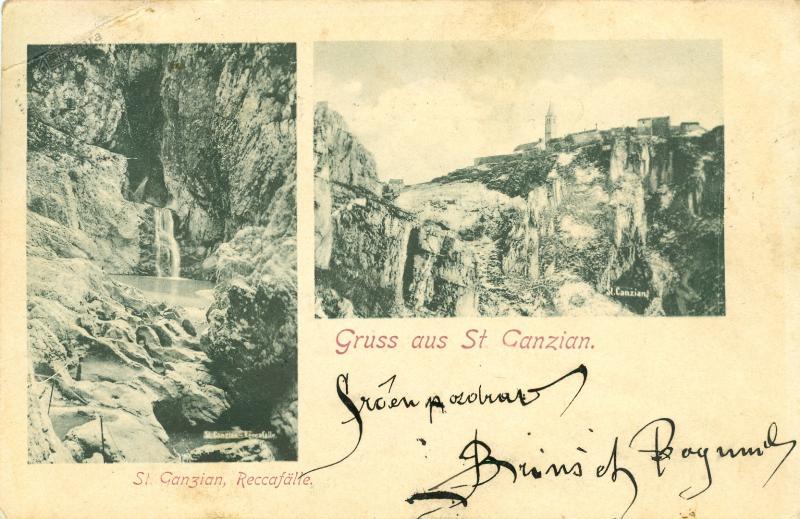 St. Canzian - Reccafälle.
St. Canzian
Gruss aus St Canzian.
St. Canzian, Reccafälle.
Srčen pozdrav
Bogumil